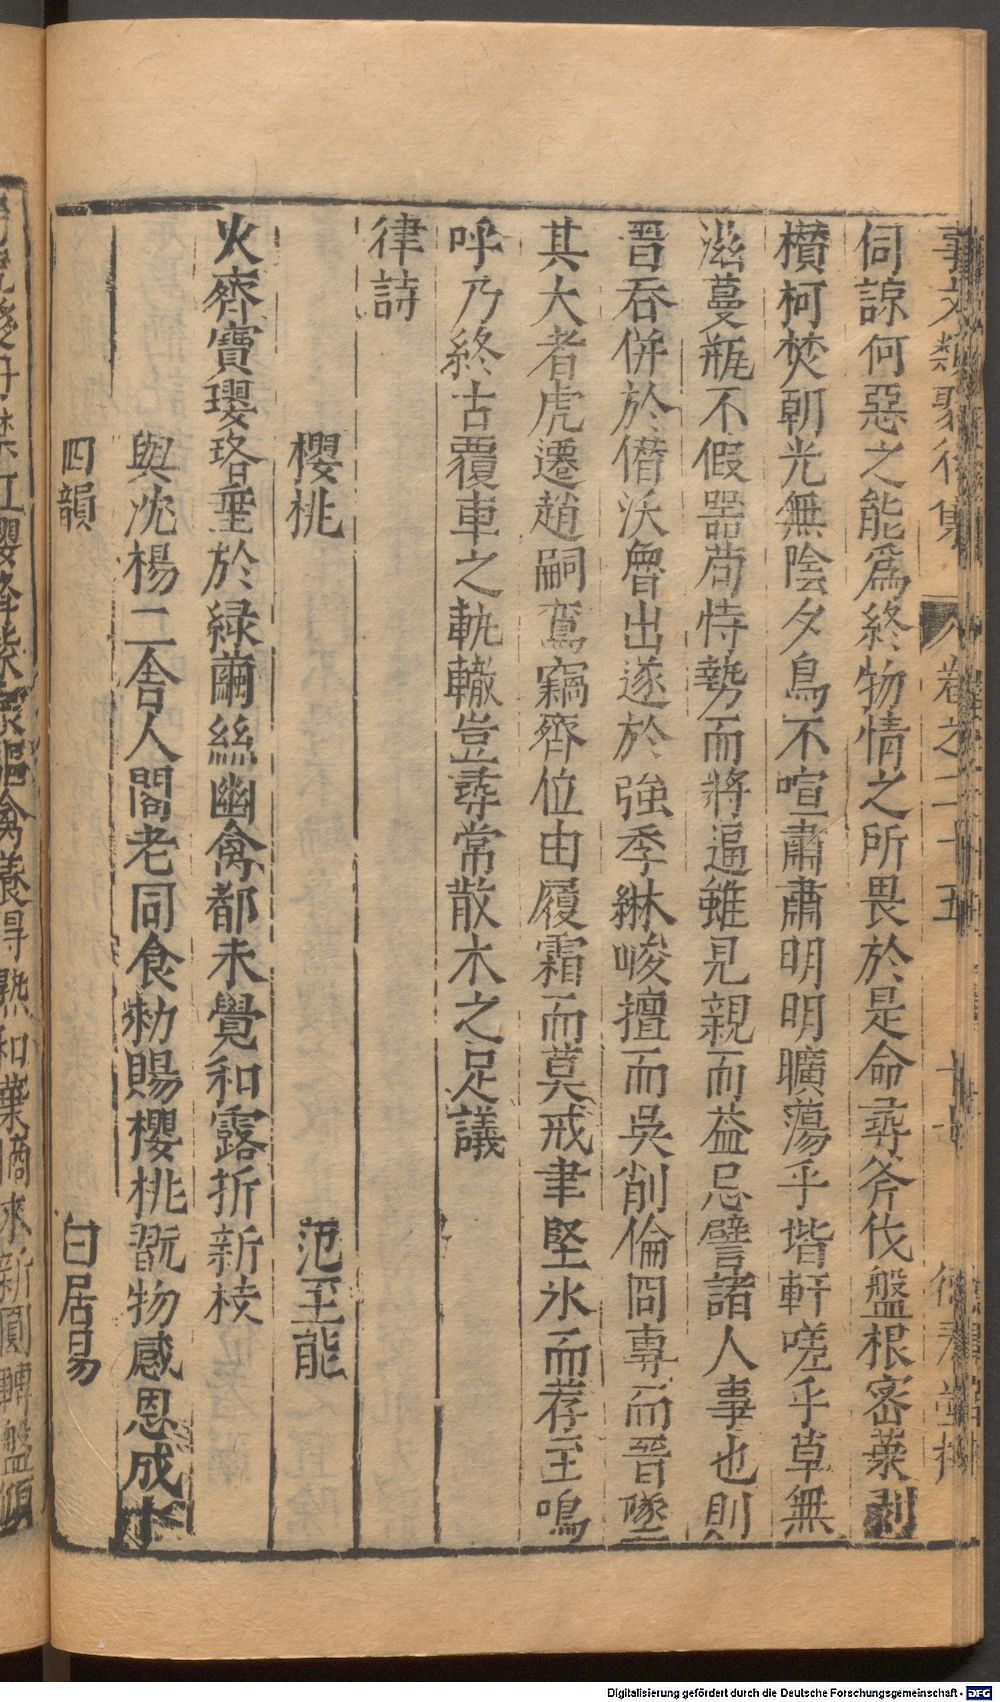 事文類聚後集 卷之二十五 德壽堂梓
伺諒何惡之能爲終物情之所畏於是命尋斧伐盤根密葉剝
欑柯焚朝光無陰夕鳥不喧肅肅明明曠蕩乎堦軒嗟乎草無
滋蔓瓶不假器苟恃勢而將逼雖見親而益忌譬諸人事也則
晉吞併於僭沃魯出遂於強季緋峻擅而吳削倫冏專而晉墜
其大者虎遷趙嗣鸞竊齊位由履霜而莫戒聿堅氷而荐至鳴
呼乃終古覆車之軌轍豈尋常散木之足議
律詩
櫻桃 范至能
火齊寶瓔珞垂於緑繭絲幽禽都未覺和露折新枝
與沈楊二舍人閣老同食勑賜櫻桃翫物感恩成十
四韻 白居易
Digitalisierung gefördert durch die Deutsche Forschungsgemeinschaft - DFG